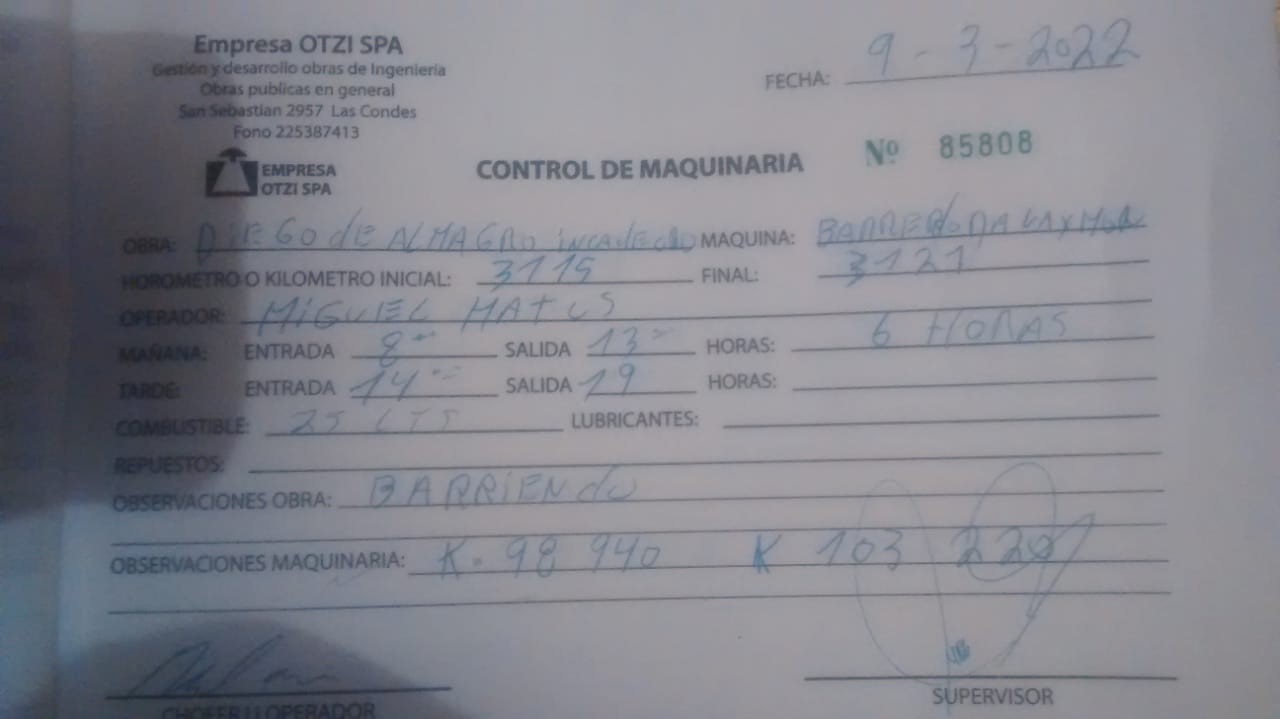 Empresa OTZI SPA
Gestión y desarrollo obras de Ingeniería
Obras publicas en general
San Sebastian 2957 Las Condes
Fono 225387413
FECHA: 9-3-2022
EMPRESA
OTZI SPA
CONTROL DE MAQUINARIA
Nº 85808
OBRA: DiEGO dE ALMAGRO MAQUINA:
HOROMETRO O KILOMETRO INICIAL: 3115 FINAL: 3121
OPERADOR: MiGUEL
MAÑANA: ENTRADA 8 SALIDA 13 HORAS: 6 HORAS
TARDE: ENTRADA 14 SALIDA 19 HORAS:
COMBUSTIBLE: 25 LTS LUBRICANTES:
REPUESTOS:
OBSERVACIONES OBRA: BARRiENdo
OBSERVACIONES MAQUINARIA: K. 98 940 K 103 220
CHOFER U OPERADOR
SUPERVISOR